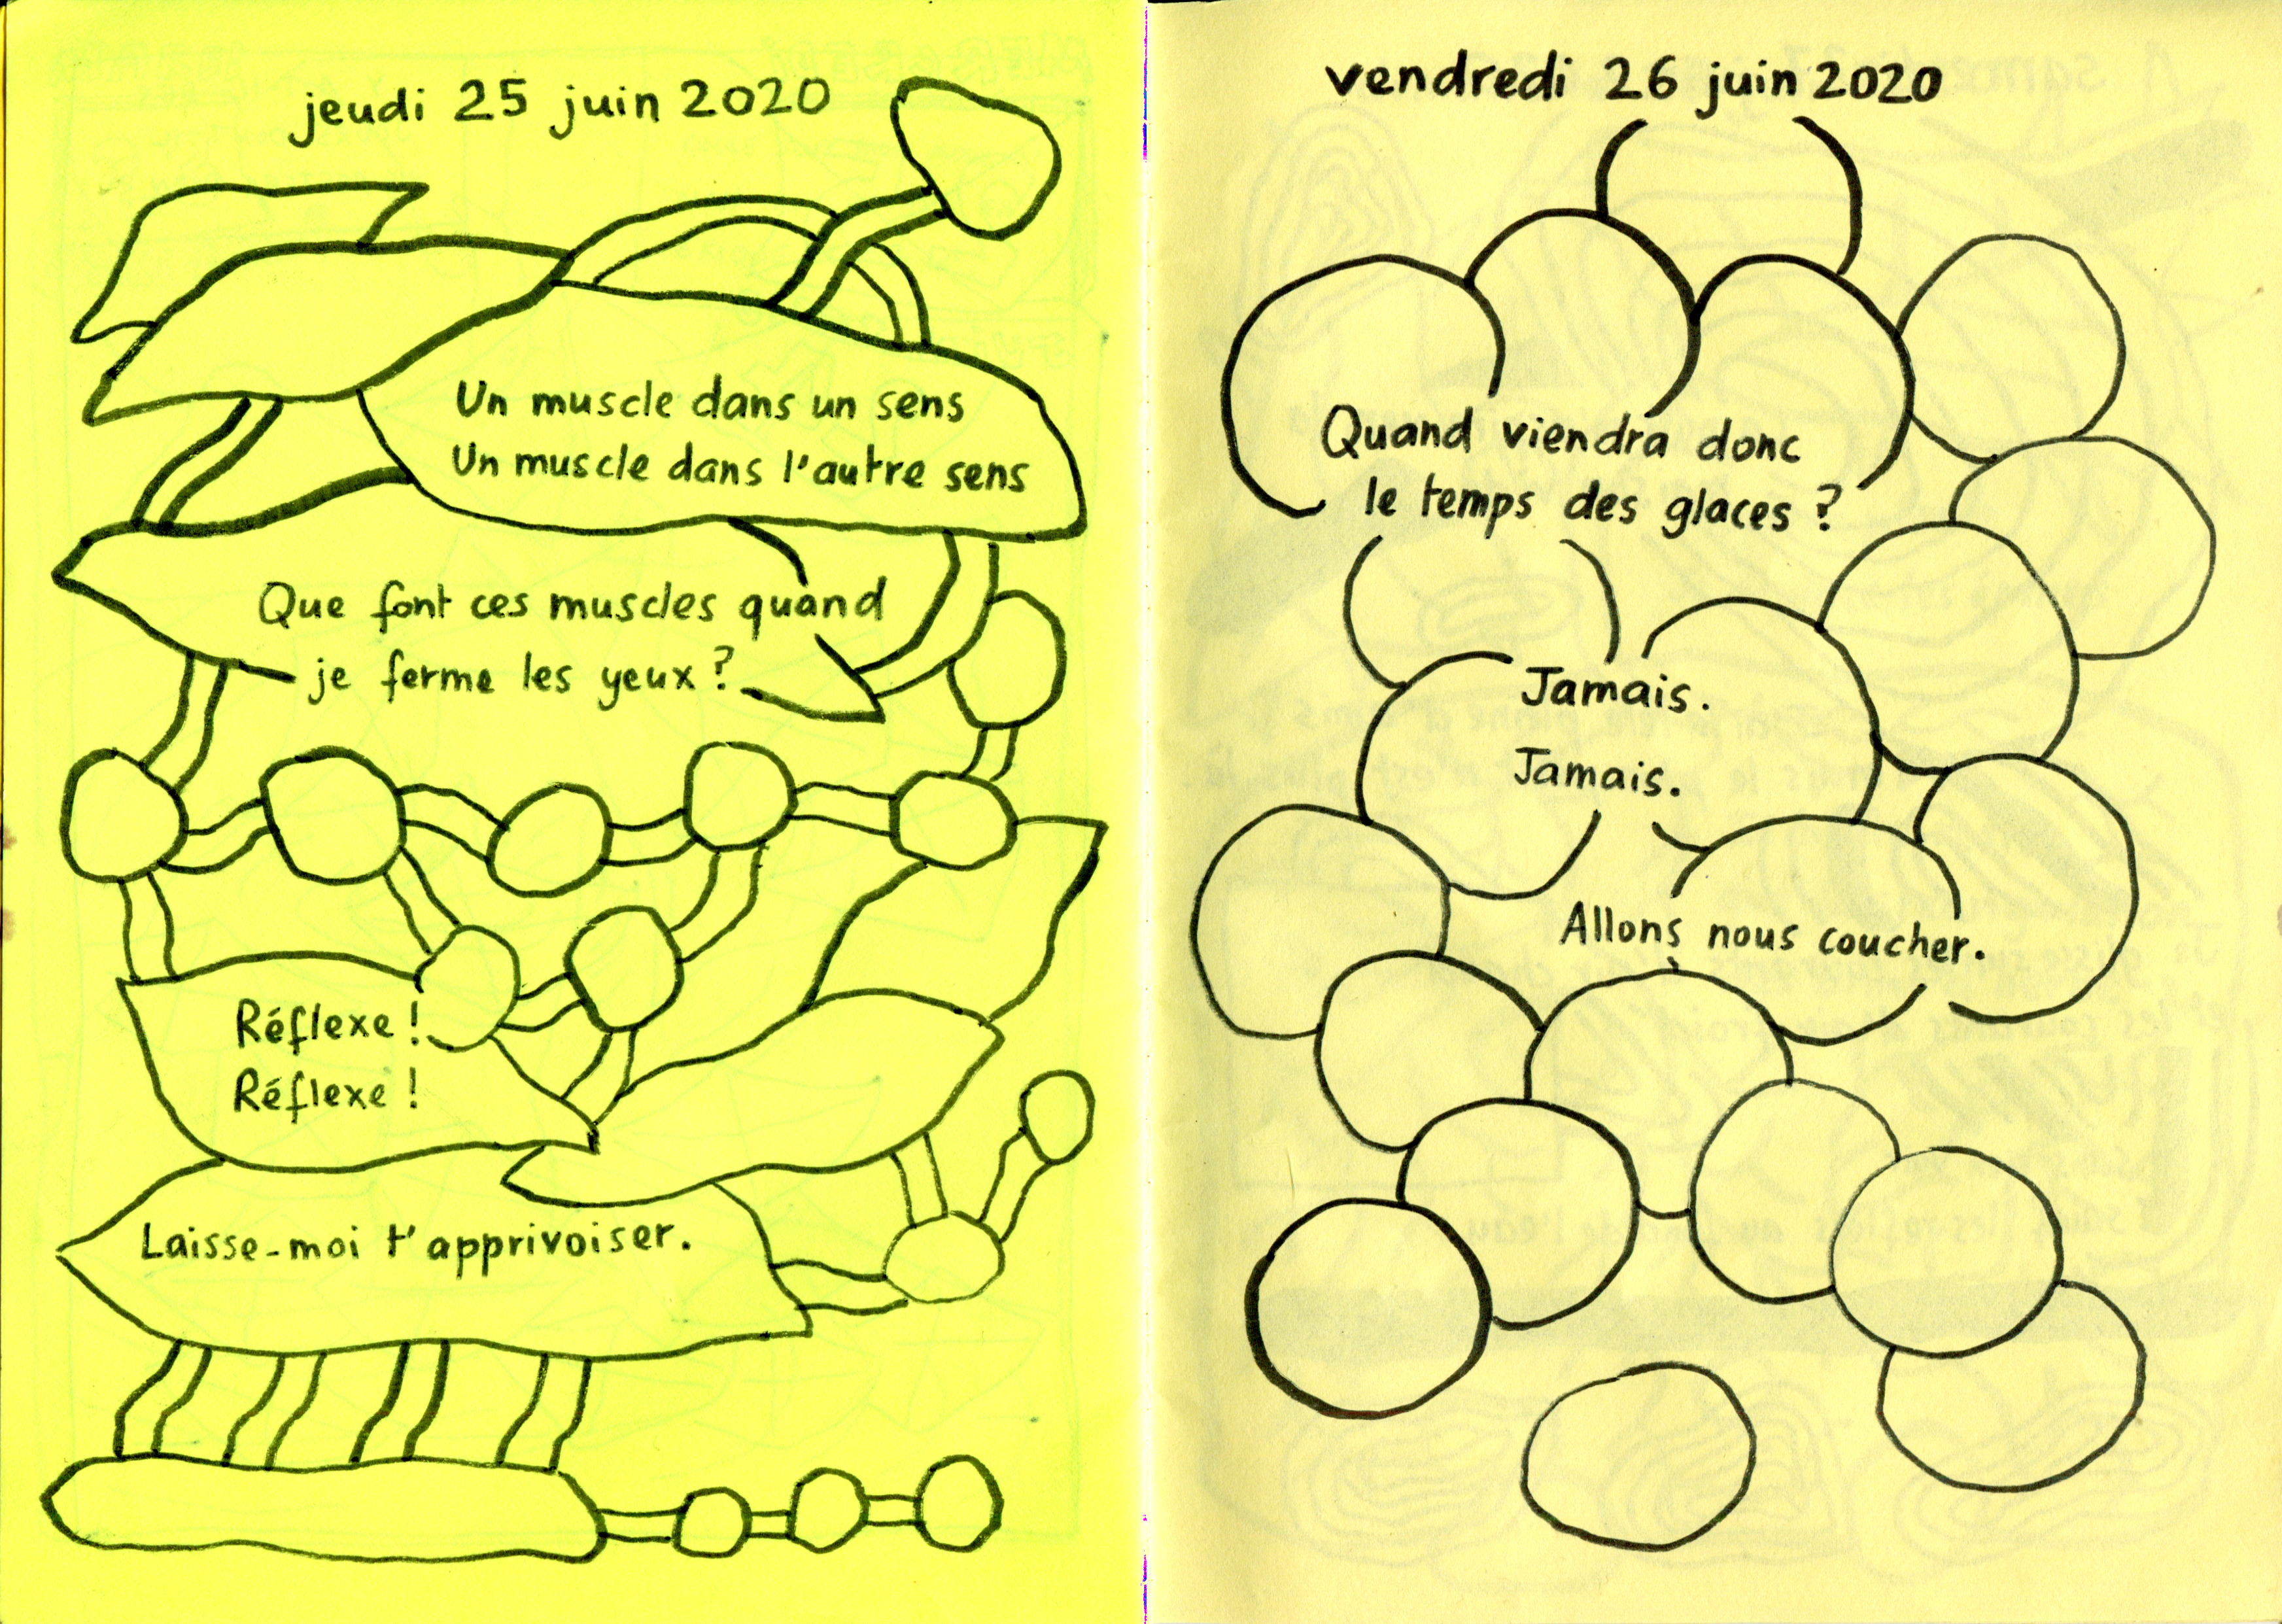 jeudi 25 juin 2020
Un muscle dans un sens
Un muscle dans l'autre sens
Que font ces muscles quand
je ferme les yeux ?
Réflexe !
Réflexe !
Laisse-moi t'apprivoiser.
vendredi 26 juin 2020
Quand viendra donc
le temps des glaces ?
Jamais.
Jamais.
Allons nous coucher.